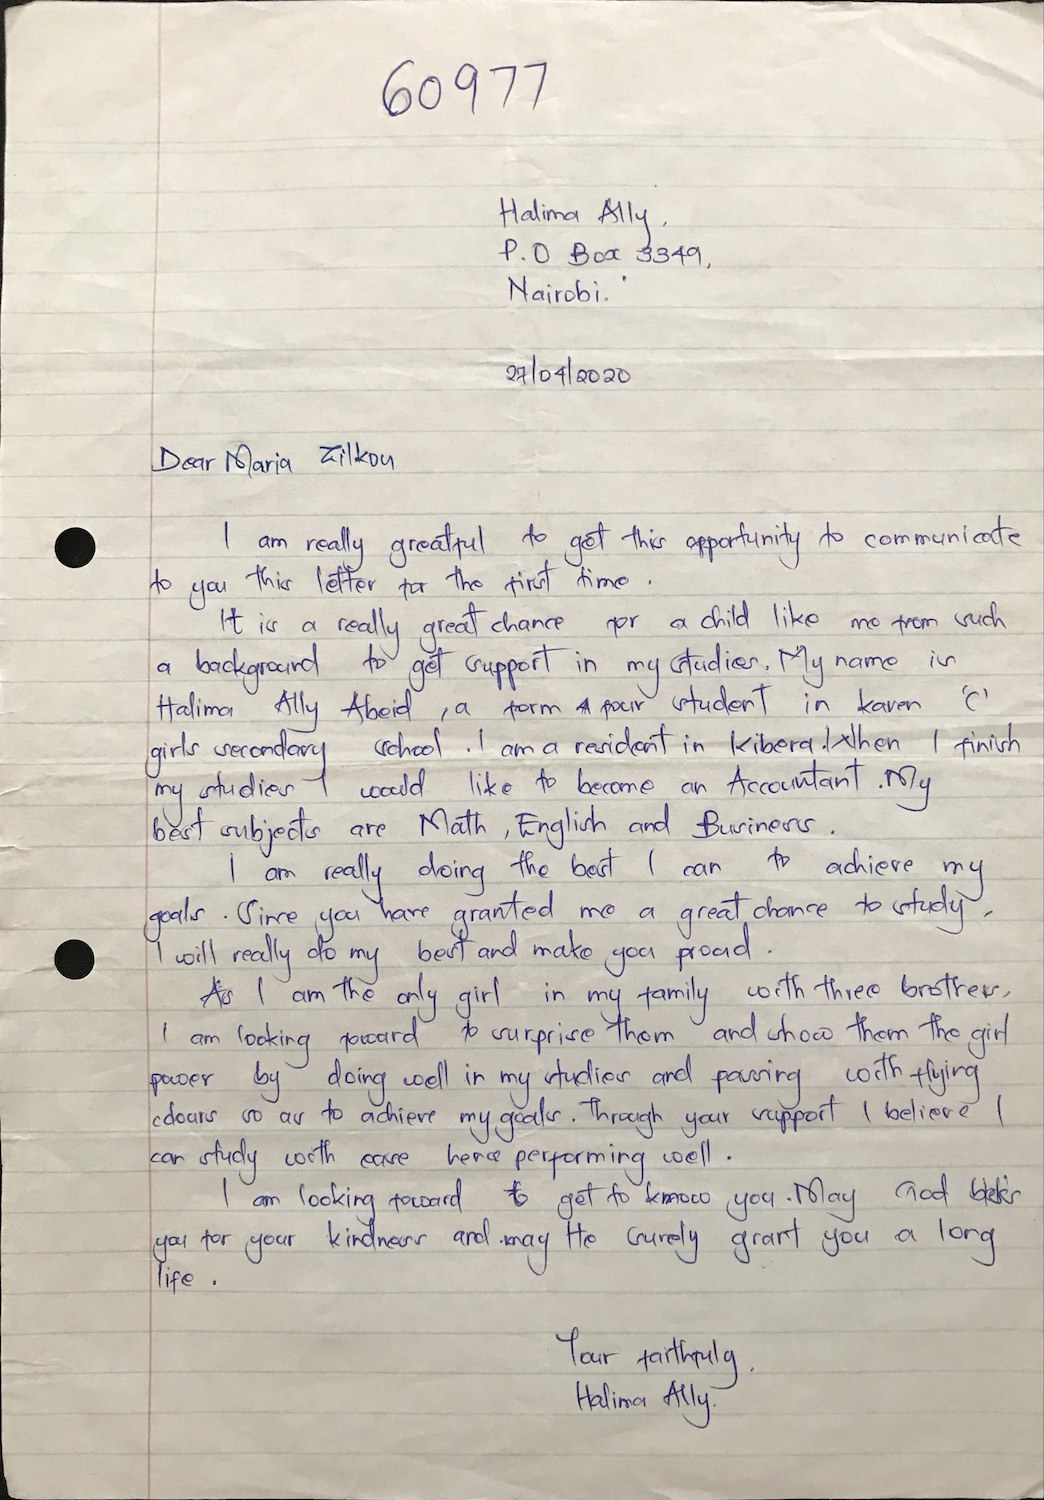 60977
Halima Ally,
P.O Box 3349,
Nairobi.
27/04/2020
Dear Maria Zilkou
I am really greatful to get this opportunity to communicate
to you this letter for the first time.
It is a really great chance for a child like me from such
a background to get support in my studies. My name is
Halima Ally Abeid, a form four student in karen 'C'
girls secondary school. I am a resident in Kibera. When I finish
my studies I would like to become an Accountant. My
best subjects are Math, English and Business.
I am really doing the best I can to achieve my
goals. Since you have granted me a great chance to study,
I will really do my best and make you proud.
As I am the only girl in my family with three brothers,
I am looking foward to surprise them and show them the girl
power by doing well in my studies and passing with flying
colours so as to achieve my goals. Through your support I believe I
can study with ease hence performing well.
I am looking foward to get to know you. May God bless
you for your kindness and may He surely grant you a long
life.
Your faithfuly,
Halima Ally.